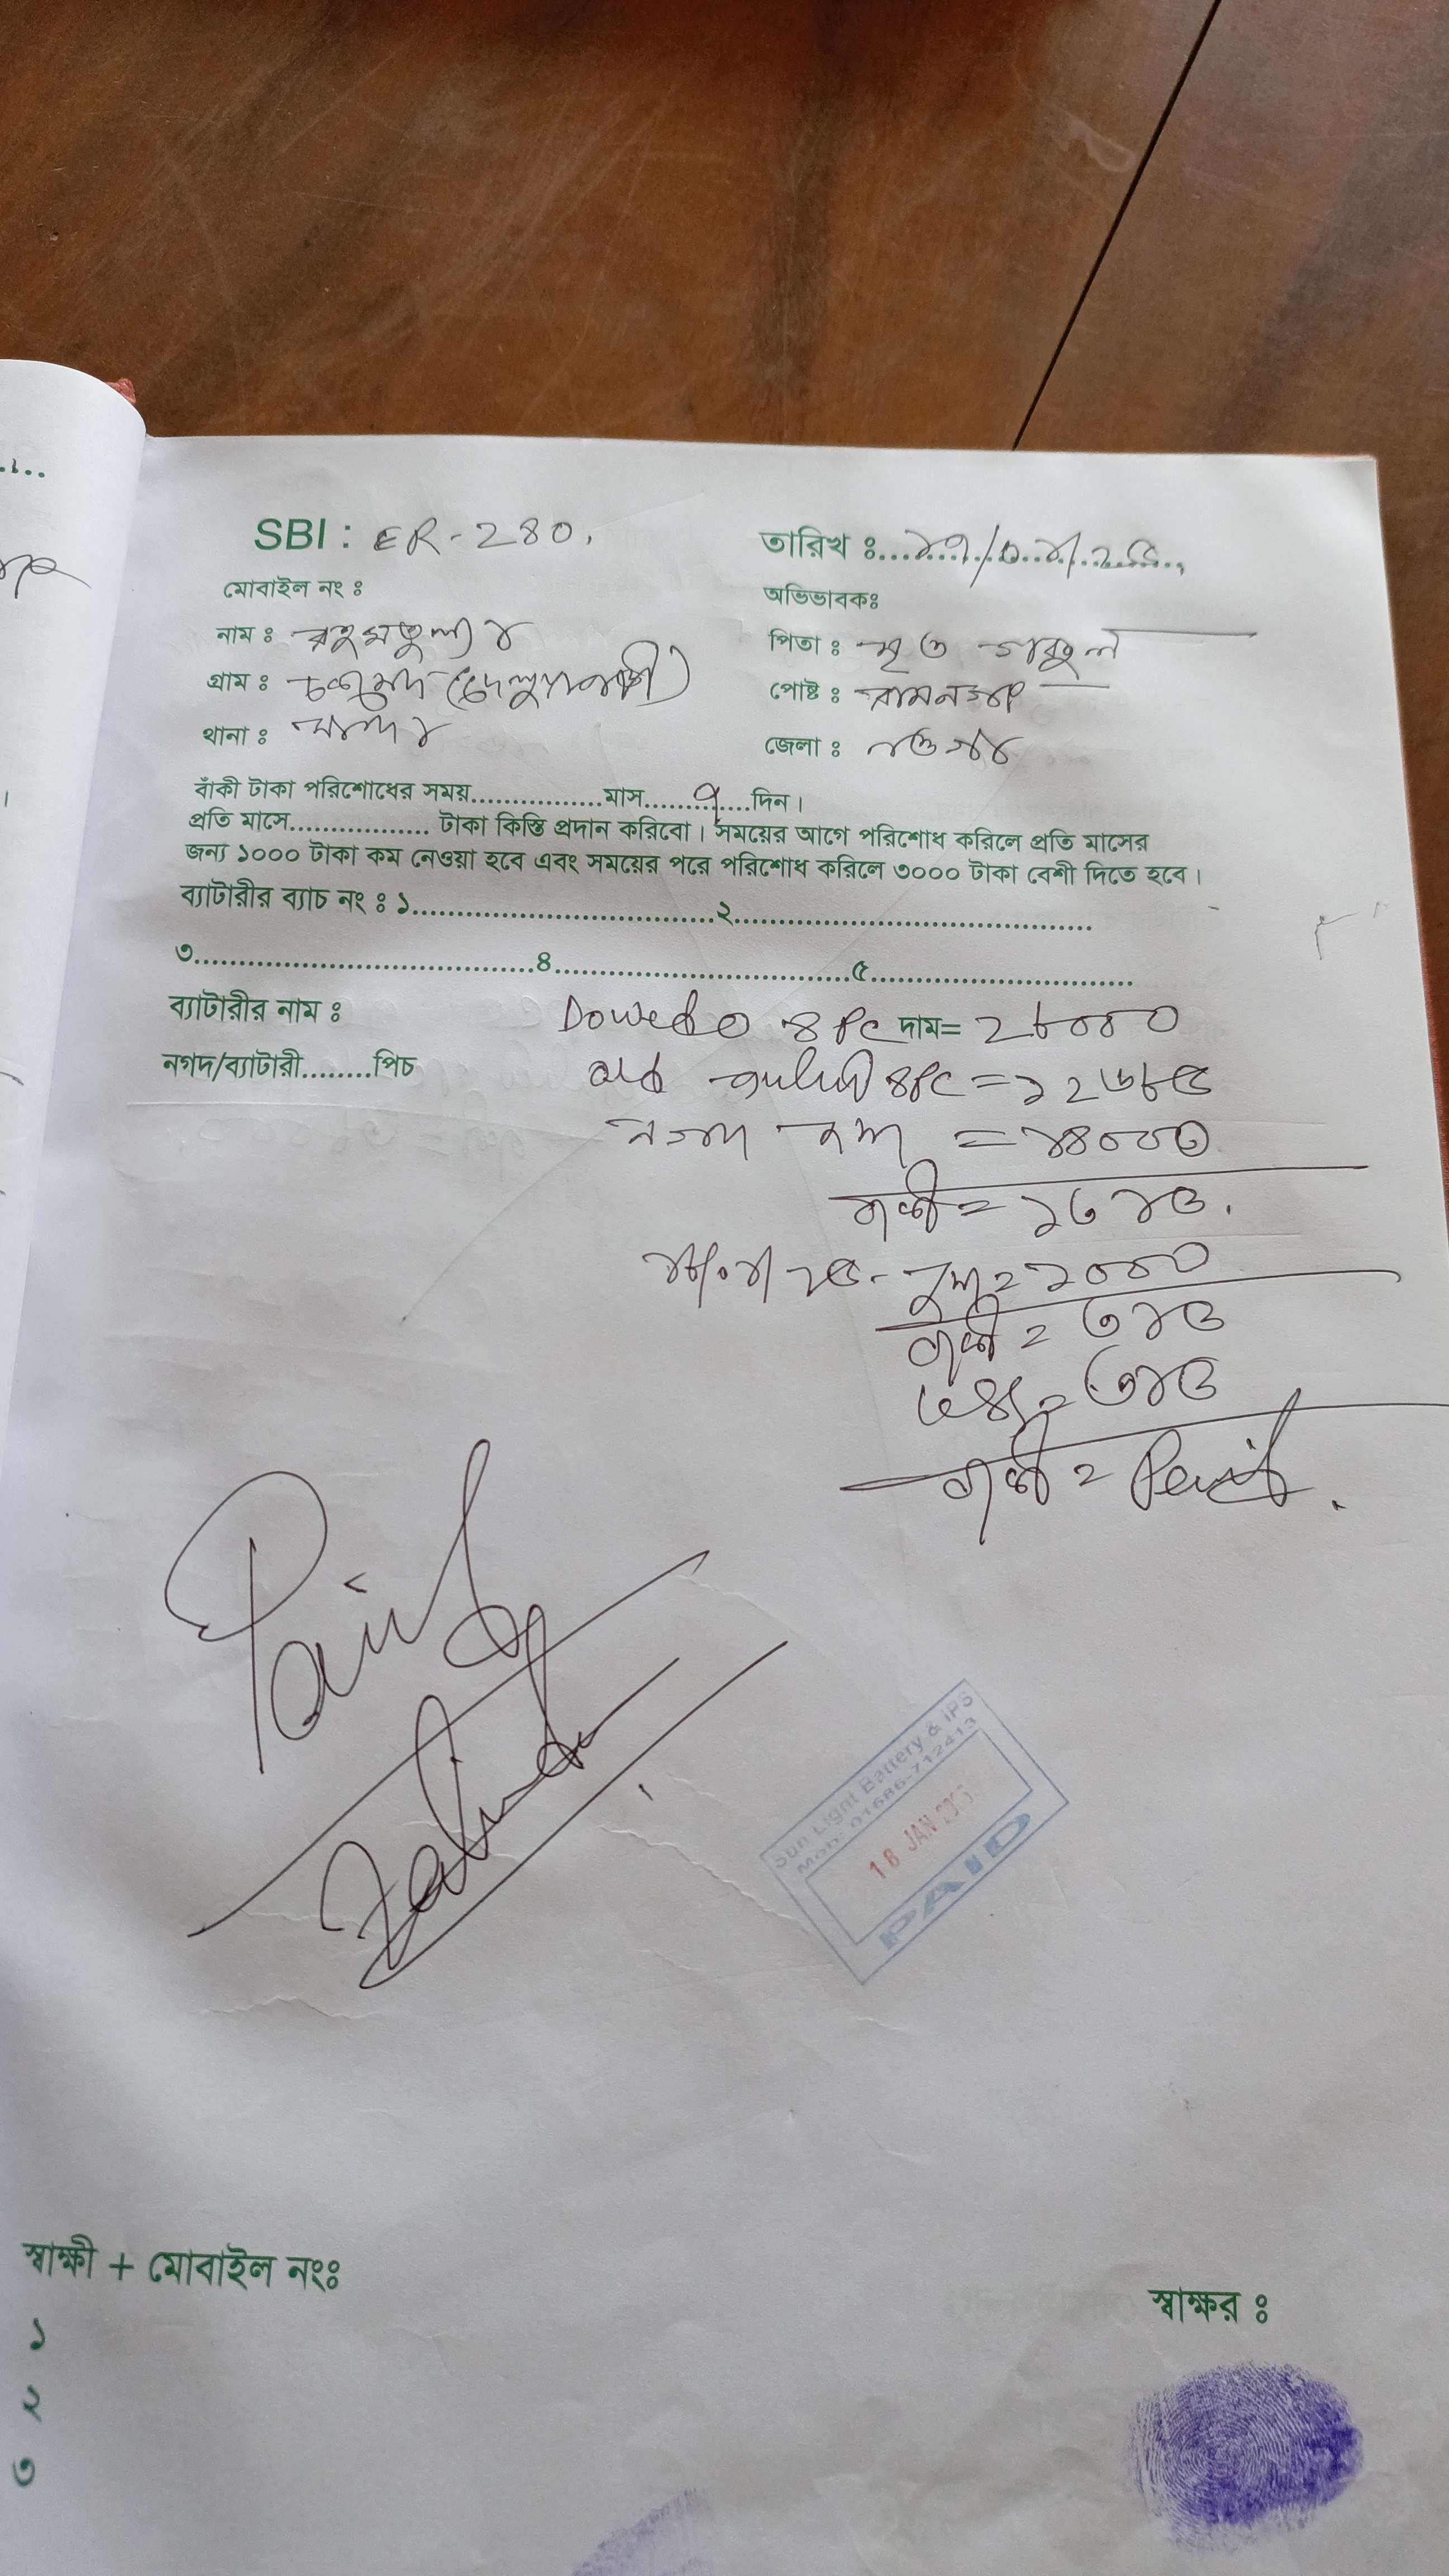 SBI : ER-280.
তারিখ ঃ ১৭/০১/২৬
মোবাইল নং ঃ
অভিভাবকঃ
নাম ঃ রহমতুল্যা
পিতা ঃ মৃত
গ্রাম ঃ
পোষ্ট ঃ
থানা ঃ মান্দা
জেলা ঃ নওগাঁ
বাঁকী টাকা পরিশোধের সময়................মাস......৭....দিন।
প্রতি মাসে................. টাকা কিস্তি প্রদান করিবো। সময়ের আগে পরিশোধ করিলে প্রতি মাসের
জন্য ১০০০ টাকা কম নেওয়া হবে এবং সময়ের পরে পরিশোধ করিলে ৩০০০ টাকা বেশী দিতে হবে।
ব্যাটারীর ব্যাচ নং ঃ ১....................................২...........................................
৩.........................................৪...................................৫...............................
ব্যাটারীর নাম ঃ ৪ PC দাম= ২৮০০০
নগদ/ব্যাটারী........পিচ
old ৪PC = ১২৬৮৫
নগদ জমা = ১৪০০০
বাকী = ১৩১৫.
১৮/০১/২৬- জমা = ১০০০
বাকী = ৩১৫
= ৩১৫
বাকী = Paid.
Paid
Sun Light Battery & IPS
Mob: 01686-712413
18 JAN 202
PAID
স্বাক্ষী + মোবাইল নংঃ
স্বাক্ষর ঃ
১
২
৩